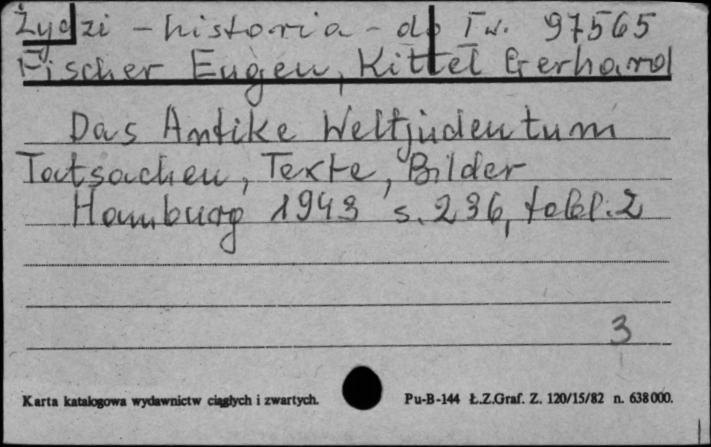 Żydzi - historia - do I w. 97565
Fischer Eugen, Kittel Gerhard
Das Antike Weltjudentum
Tatsachen, Texte, Bilder
Hamburg 1943 s. 236, tabl. 2
3
Karta katalogowa wydawnictw ciągłych i zwartych. Pu-B-144 Ł.Z.Graf. Z. 120/15/82 n. 638000.